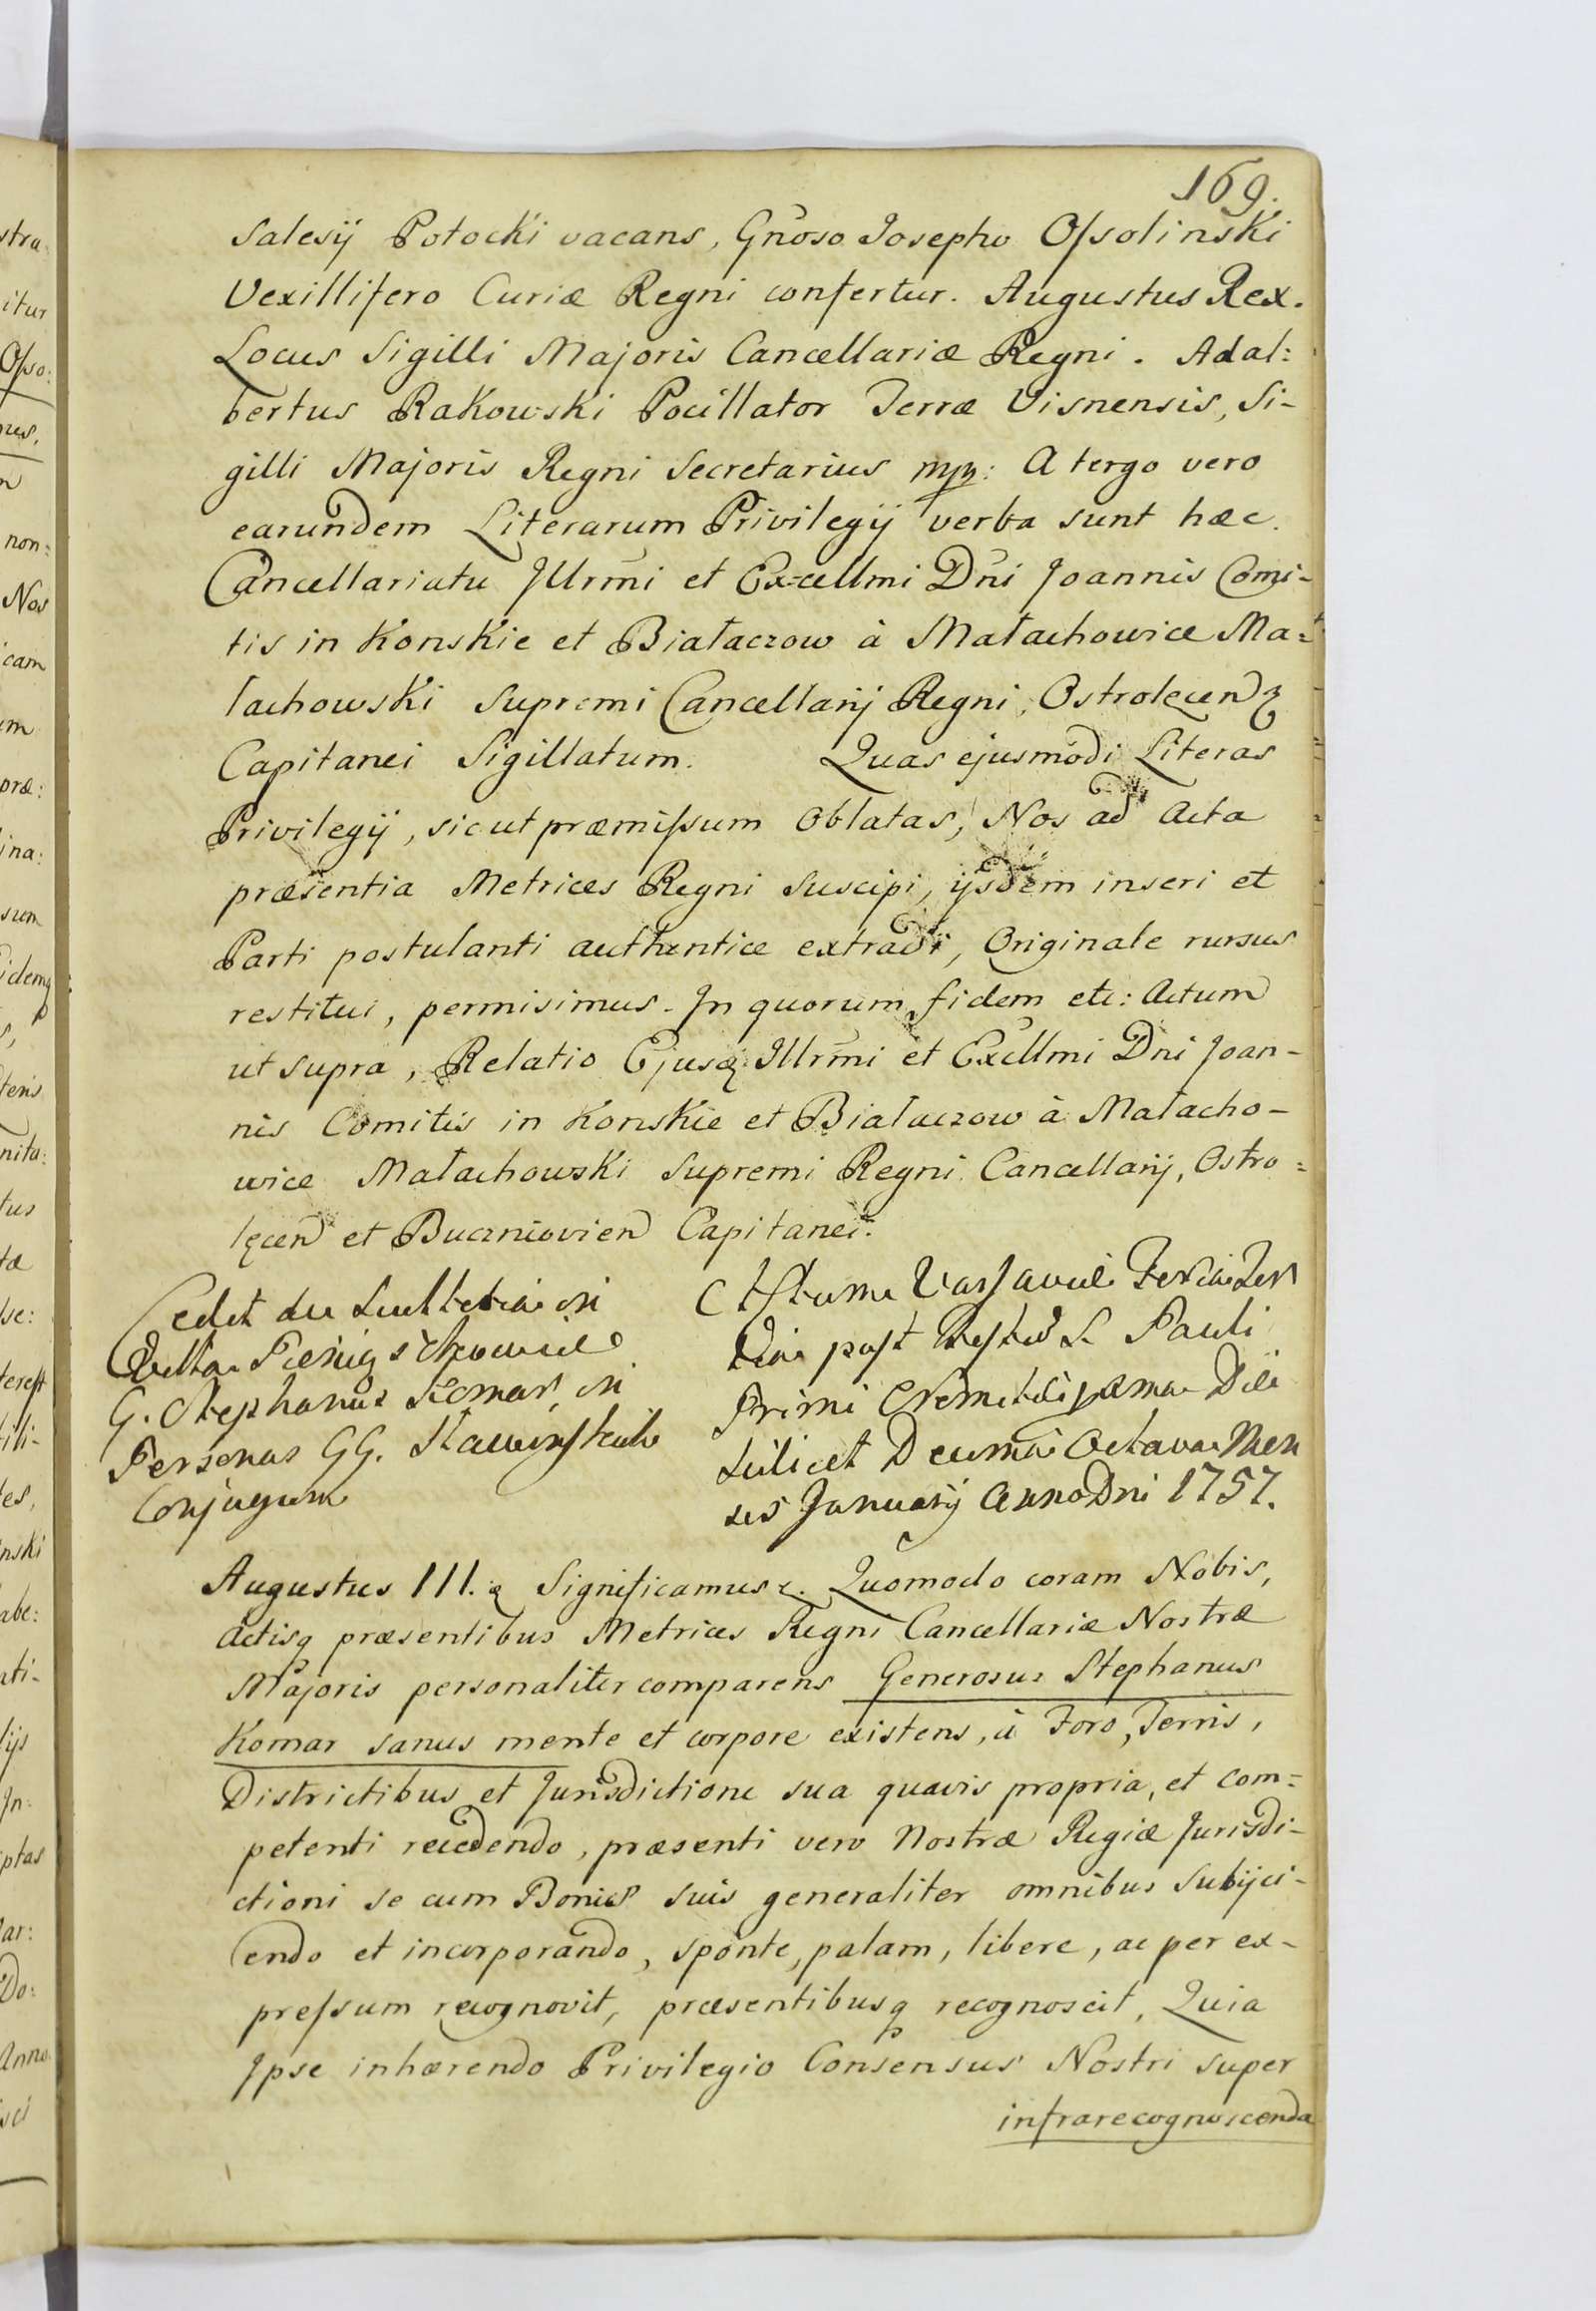 169.
Salesij Potocki vacans, Gnoso Josepho Ossolinski
Vexillifero Curiæ Regni confertur. Augustus Rex.
Locus Sigilli Majoris Cancellariæ Regni. Adal:
bertus Rakowski Pocillator Terræ Visnensis, Si-
gilli Majoris Regni Secretarius mpp: A tergo vero
earundem Literarum Privilegij verba sunt hæc.
Cancellariatu Jllrmi et Excellmi Dni Joannis Comi-
tis in Konskie et Białaczow à Małachowice Ma=
łachowski Supremi Cancellarij Regni, Ostrolęcen
Capitanei Sigillatum. Quas ejusmodi Literas
Privilegij, sicut præmissum Oblatas, Nos ad Acta
præsentia Metrices Regni Suscipi, ijsdem inseri et
Parti postulanti authentice extradi, Originale rursus
restitui, permisimus. In quorum fidem etc: Actum
ut supra, Relatio Ejusq Jllrmi et Excllmi Dni Joan-
nis Comitis in Konskie et Białaczow à Małacho-
wice Małachowski Supremi Regni Cancellarij, Ostro=
lęcen et Buczniovien Capitanei.
Cedit
G. Stephanus Komar, in
Personas GG.
Conjugum
Actum Varsaviæ Feria Ter
tia post Festum S. Pauli
Primi Eremitæ Die
Scilicet Decima Octava Men
sis Januarij Anno Dni 1757.
Augustus III. Significamus. Quomodo coram Nobis,
Actisq præsentibus Metrices Regni Cancellariæ Nostræ
Majoris personaliter comparens Generosus Stephanus
Komar sanus mente et corpore existens, à Foro, Terris,
Districtibus et Jurisdictione sua quavis propria, et com=
petenti recedendo, præsenti vero Nostræ Regiæ Jurisdi-
ctioni se cum Bonis suis generaliter omnibus Subijci-
endo et incorporando, sponte, palam, libere, ac per ex-
pressum recognovit, præsentibusq recognoscit, Quia
Jpse inhærendo Privilegio Consensus Nostri super
infrarecognoscenda